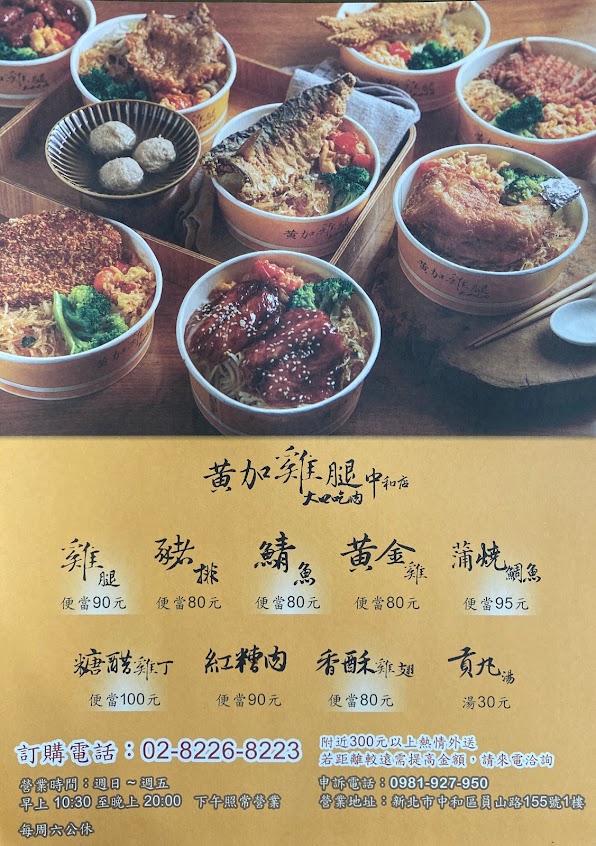 黃加雞腿
黃加雞腿
黃加雞腿中和店
大口吃肉
雞腿 豬排 鯖魚 黃金雞 蒲燒鯛魚
便當90元 便當80元 便當80元 便當80元 便當95元
糖醋雞丁 紅糟肉 香酥雞翅 貢丸湯
便當100元 便當90元 便當80元 湯30元
訂購電話：02-8226-8223
附近300元以上熱情外送
若距離較遠需提高金額，請來電洽詢
營業時間：週日～週五
早上 10:30 至晚上 20:00 下午照常營業
每周六公休
申訴電話：0981-927-950
營業地址：新北市中和區員山路155號1樓